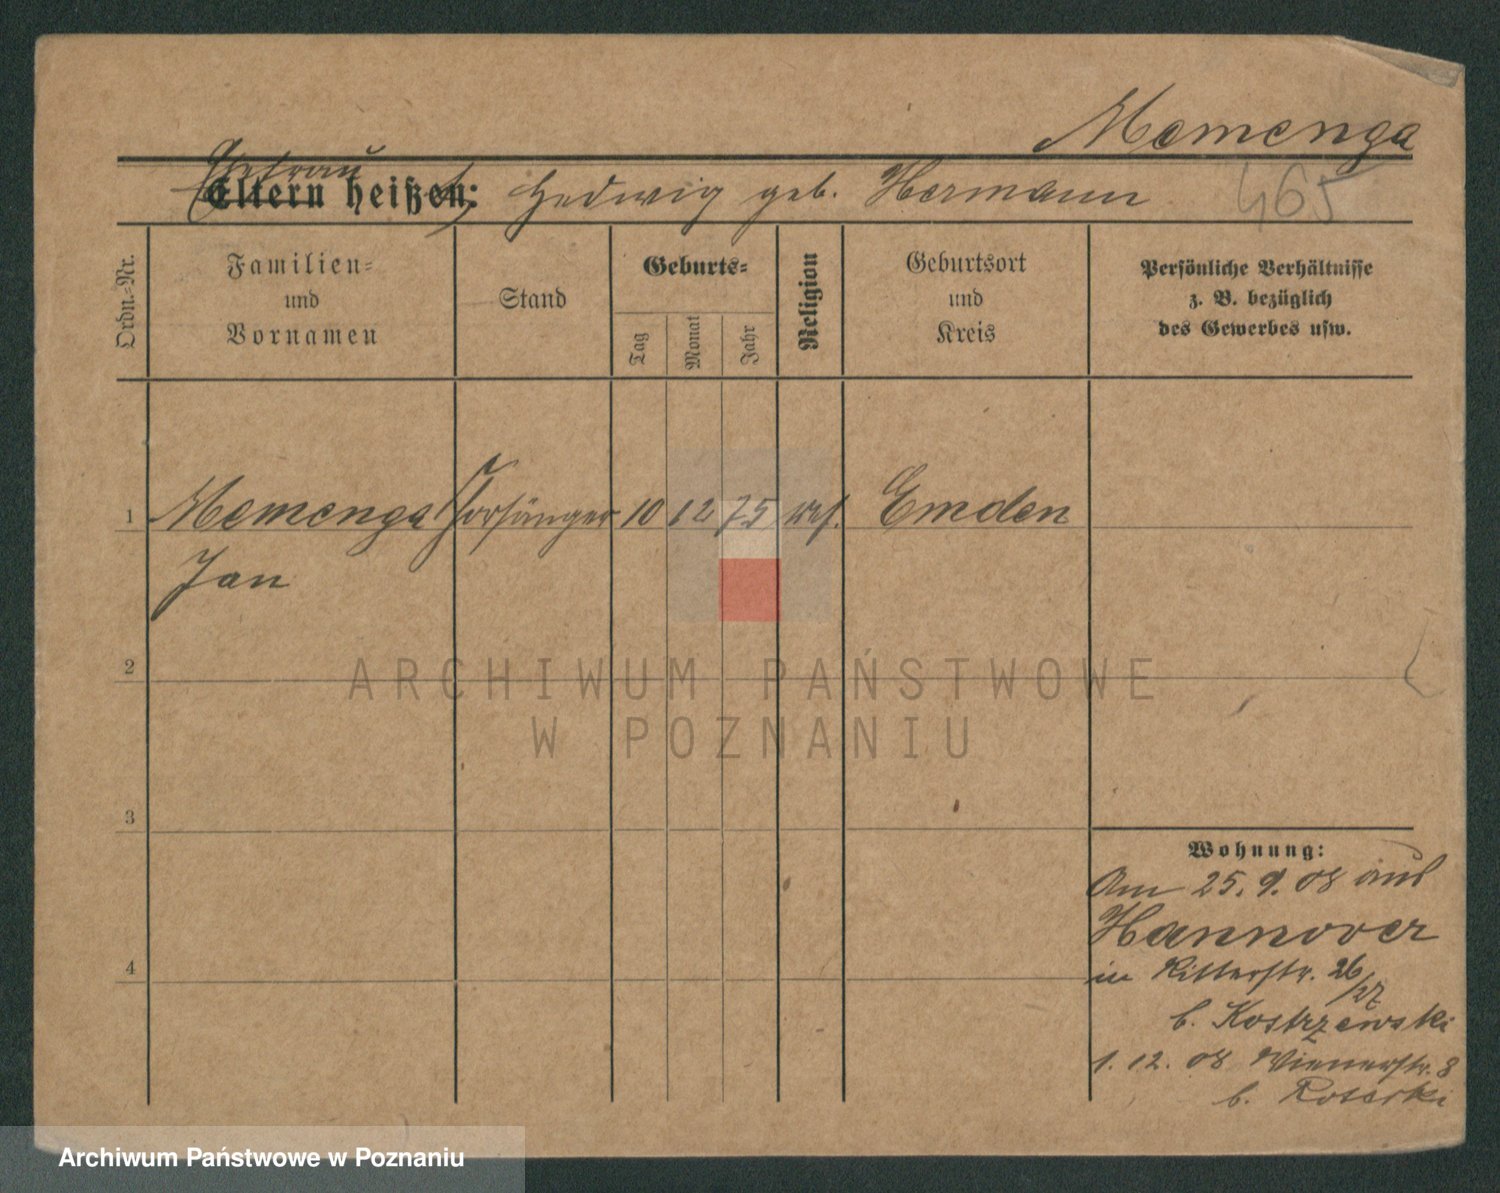 Memenga
Ehefrau
Eltern heißen: Hedwig geb. Hermann 465
Ordn.-Nr.
Familien-
und
Vornamen
Stand
Geburts-
Tag
Monat
Jahr
Religion
Geburtsort
und
Kreis
Persönliche Verhältnisse
z. B. bezüglich
des Gewerbes usw.
1 Memenga 10 12 75 ref. Emden
Jan
2
ARCHIWUM PAŃSTWOWE
W POZNANIU
3
Wohnung:
Am 25. 9. 08 aus
Hannover
in Ritterstr. 26/27
b. Kostrzewski
4
1. 12. 08 Wienerstr. 8
b.
Archiwum Państwowe w Poznaniu